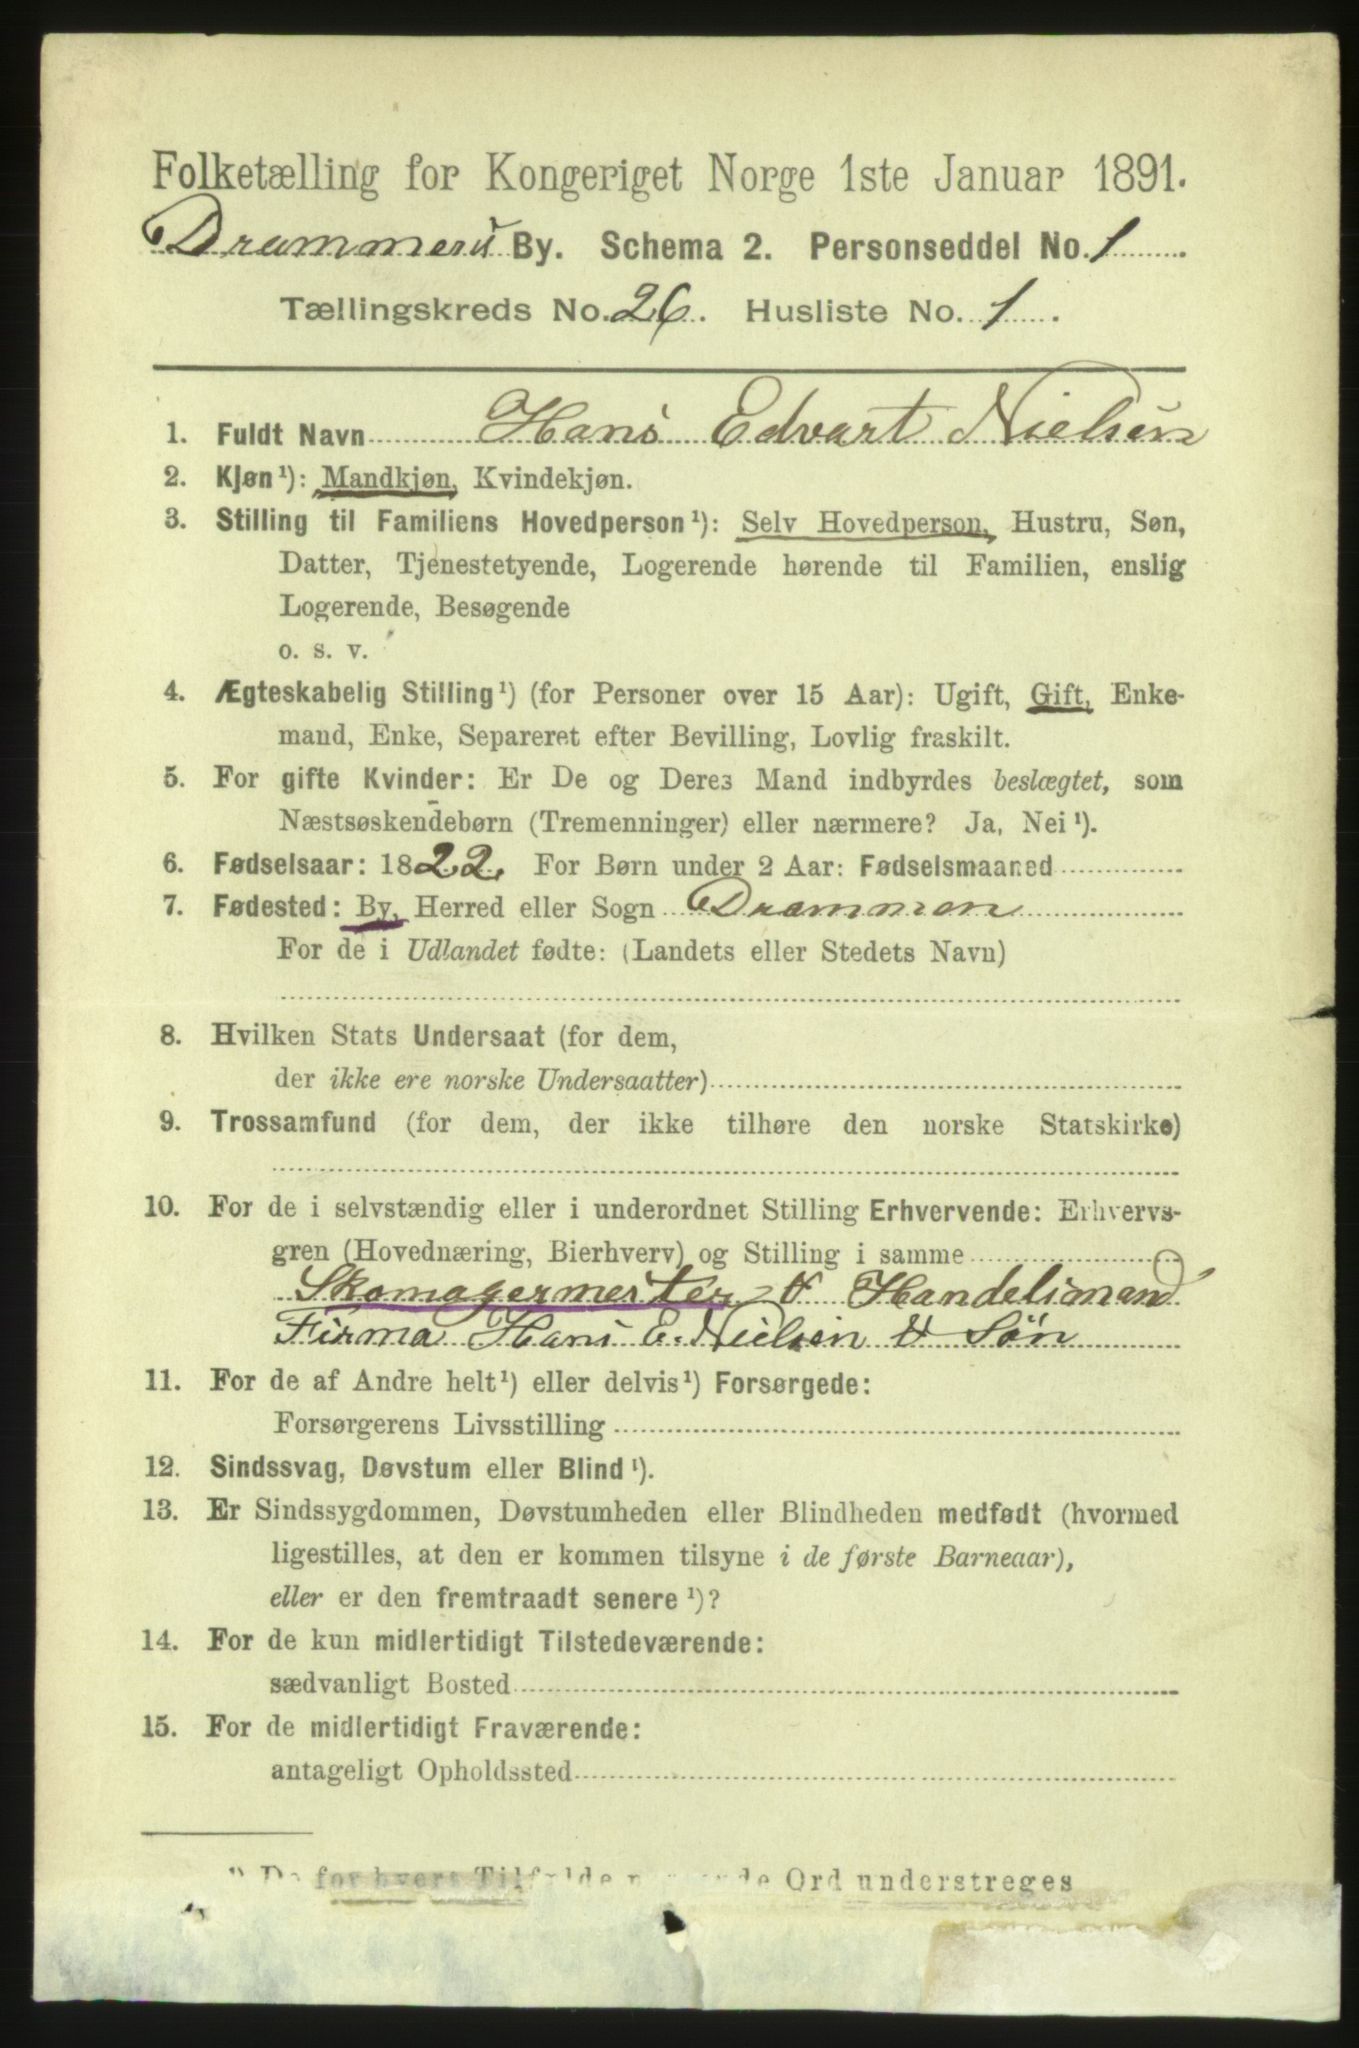 Folketælling for Kongeriget Norge 1ste Januar 1891.
Drammens By. Schema 2. Personseddel No. 1
Tællingskreds No. 26. Husliste No. 1.
1. Fuldt Navn Hans Edvart Nielsen
2. Kjøn¹): Mandkjøn, Kvindekjøn.
3. Stilling til Familiens Hovedperson¹): Selv Hovedperson, Hustru, Søn,
Datter, Tjenestetyende, Logerende hørende til Familien, enslig
Logerende, Besøgende
o. s. v.
4. Ægteskabelig Stilling¹) (for Personer over 15 Aar): Ugift, Gift, Enke-
mand, Enke, Separeret efter Bevilling, Lovlig fraskilt.
5. For gifte Kvinder: Er De og Deres Mand indbyrdes beslægtet, som
Næstsøskendebørn (Tremenninger) eller nærmere? Ja, Nei¹).
6. Fødselsaar: 1822. For Børn under 2 Aar: Fødselsmaaned
7. Fødested: By, Herred eller Sogn Drammen
For de i Udlandet fødte: (Landets eller Stedets Navn)
8. Hvilken Stats Undersaat (for dem,
der ikke ere norske Undersaatter)
9. Trossamfund (for dem, der ikke tilhøre den norske Statskirke)
10. For de i selvstændig eller i underordnet Stilling Erhvervende: Erhvervs-
gren (Hovednæring, Bierhverv) og Stilling i samme
Skomagermester & Handelsmand
Firma Hans E. Nielsen & Søn
11. For de af Andre helt¹) eller delvis¹) Forsørgede:
Forsørgerens Livsstilling
12. Sindssvag, Døvstum eller Blind¹).
13. Er Sindssygdommen, Døvstumheden eller Blindheden medfødt (hvormed
ligestilles, at den er kommen tilsyne i de første Barneaar),
eller er den fremtraadt senere¹)?
14. For de kun midlertidigt Tilstedeværende:
sædvanligt Bosted
15. For de midlertidigt Fraværende:
antageligt Opholdssted
¹) De for hvert Tilfælde Ord understreges